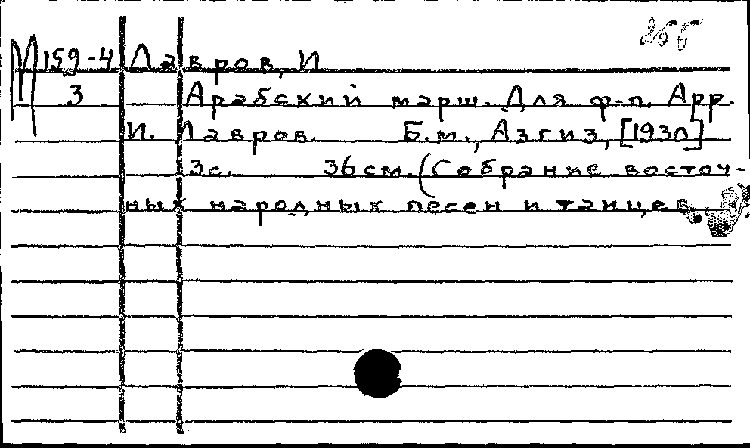 М159-4 Лавров, И
3 Арабский марш. Для ф-п. Арр.
И. Лавров. Б.м., Азгиз, [193л]
3с. 36см. (Собрание восточ-
ных народных песен и танцев